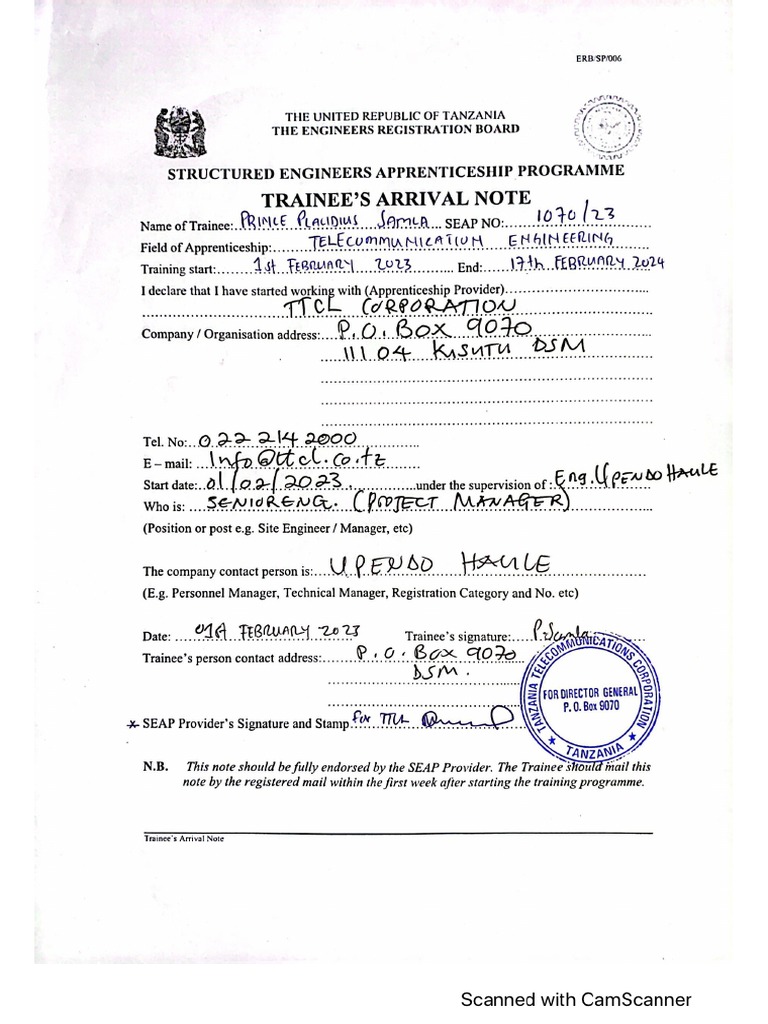 ERB/SP/006
THE UNITED REPUBLIC OF TANZANIA
THE ENGINEERS REGISTRATION BOARD
STRUCTURED ENGINEERS APPRENTICESHIP PROGRAMME
TRAINEE'S ARRIVAL NOTE
Name of Trainee: PRINCE PLACIDIUS SAMLA SEAP NO: 1070/23
Field of Apprenticeship: TELECOMMUNICATION ENGINEERING
Training start: 1st FEBRUARY 2023 End: 17th FEBRUARY 2024
I declare that I have started working with (Apprenticeship Provider)
TTCL CORPORATION
Company / Organisation address: P.O. BOX 9070
11104 KISUTU DSM
Tel. No: 022 214 2000
E – mail: Info@ttcl.co.tz
Start date: 01/02/2023 under the supervision of: Eng. UPENDO HAULE
Who is: SENIOR ENG. (PROJECT MANAGER)
(Position or post e.g. Site Engineer / Manager, etc)
The company contact person is: UPENDO HAULE
(E.g. Personnel Manager, Technical Manager, Registration Category and No. etc)
Date: 01st FEBRUARY 2023 Trainee's signature: P.Samla
Trainee's person contact address: P.O. BOX 9070
DSM.
SEAP Provider's Signature and Stamp for TTCL
TANZANIA TELECOMMUNICATIONS CORPORATION
FOR DIRECTOR GENERAL
P. O. Box 9070
★ TANZANIA ★
N.B. This note should be fully endorsed by the SEAP Provider. The Trainee should mail this
note by the registered mail within the first week after starting the training programme.
Trainee's Arrival Note
Scanned with CamScanner